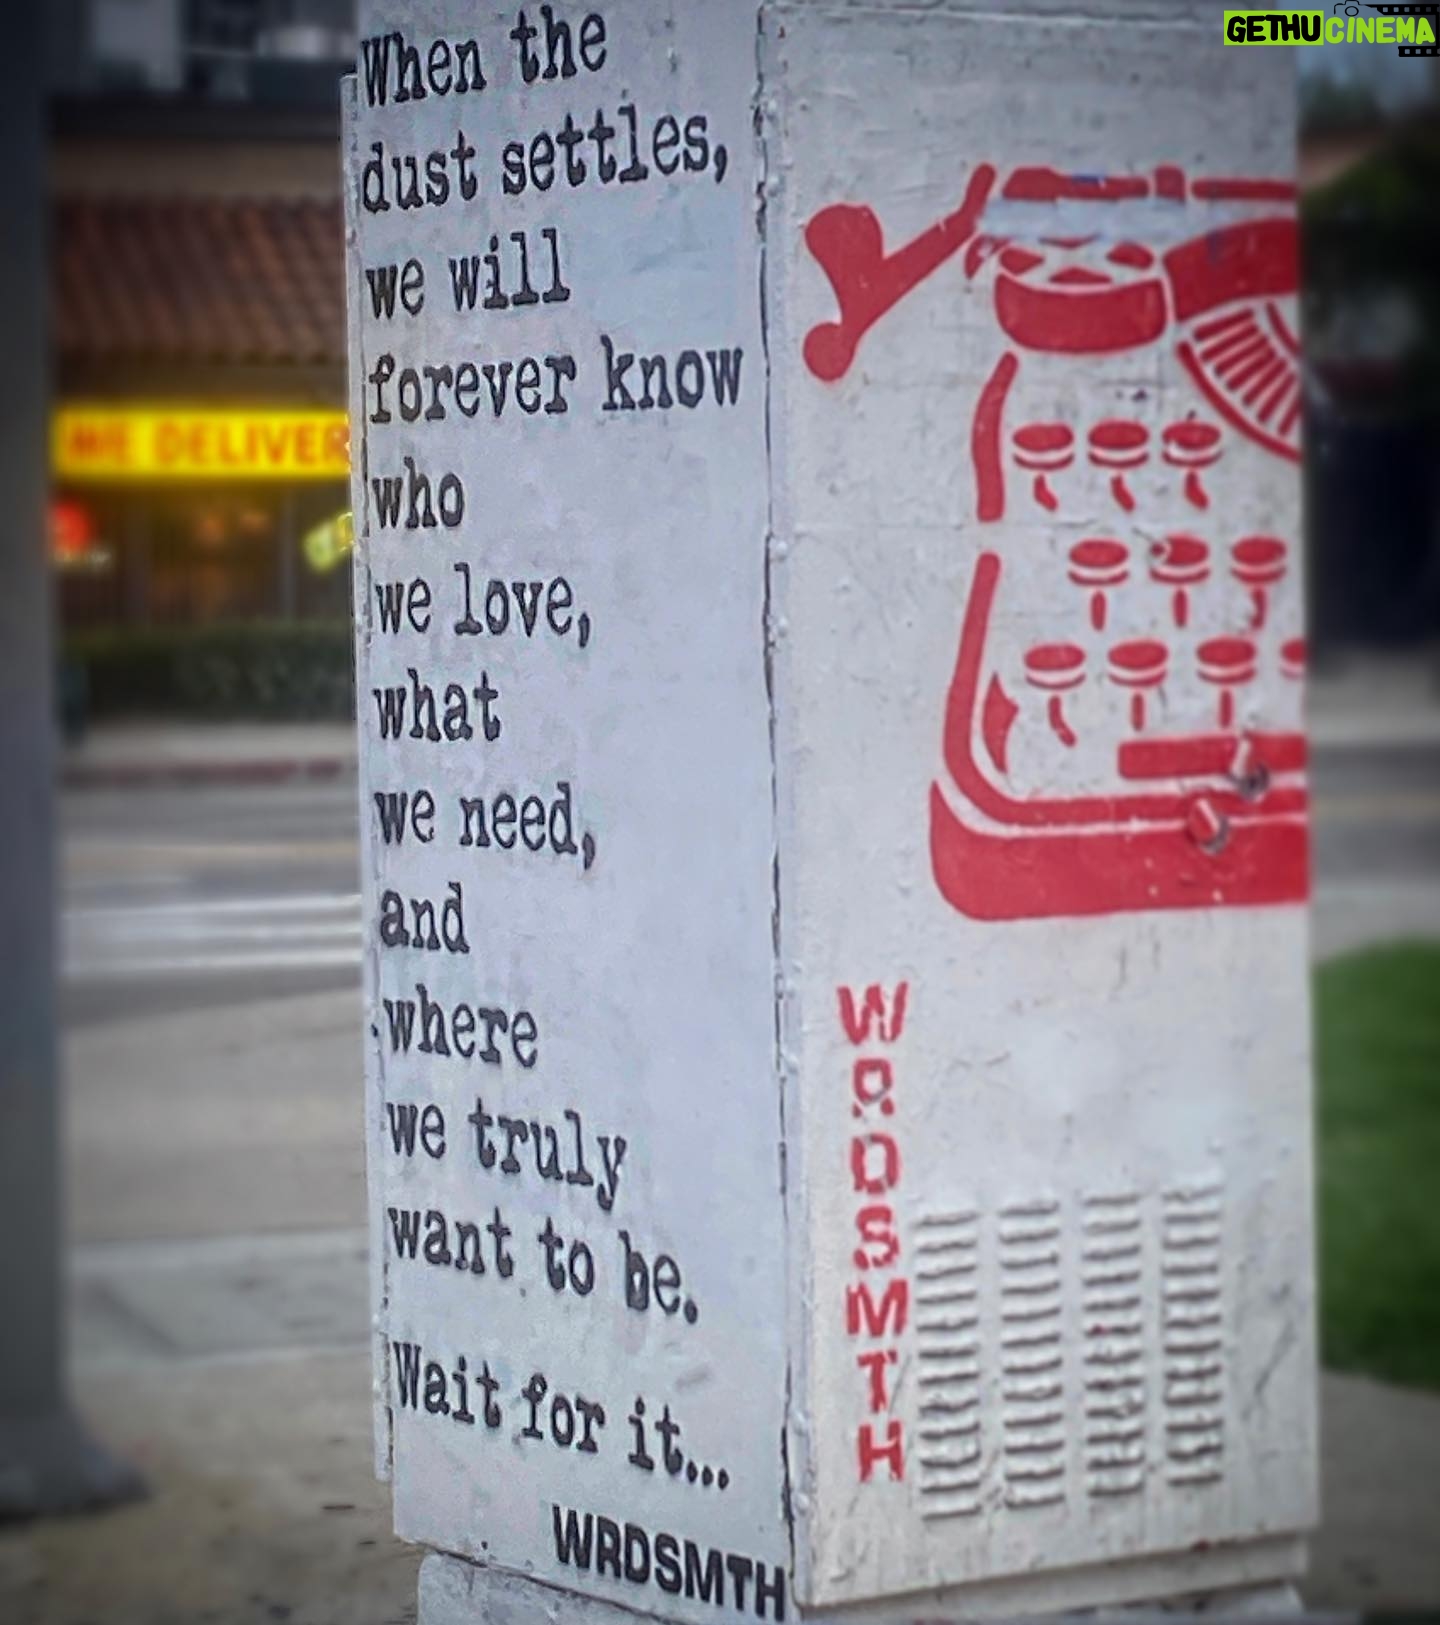 GETHUCINEMA
When the
dust settles,
we will
forever know
who
we love,
what
we need,
and
where
we truly
want to be.
Wait for it...
WRDSMTH
WRDSMTH
WE DELIVER